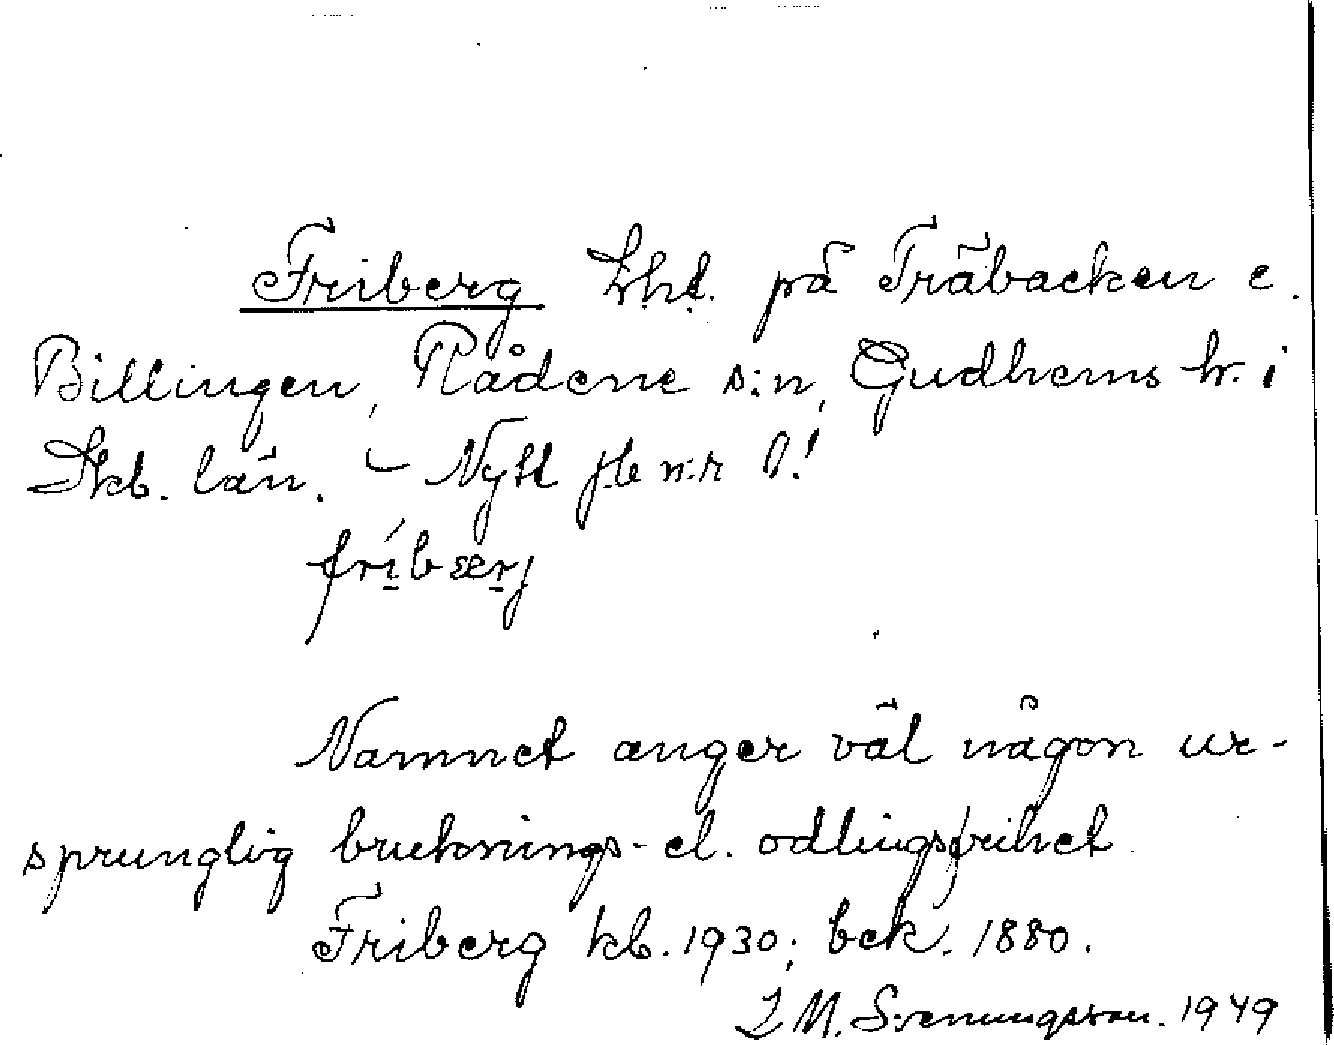 Friberg lht. på Träbacken e.
Billingen, Rådene s:n, Gudhems hr. i
Skb. län. – Nytt jb n:r 0!
fríbærj
Namnet anger väl någon ur-
sprunglig bruknings- el. odlingsfrihet.
Friberg kb. 1930; bek. 1880.
M. Svenungsson. 1949